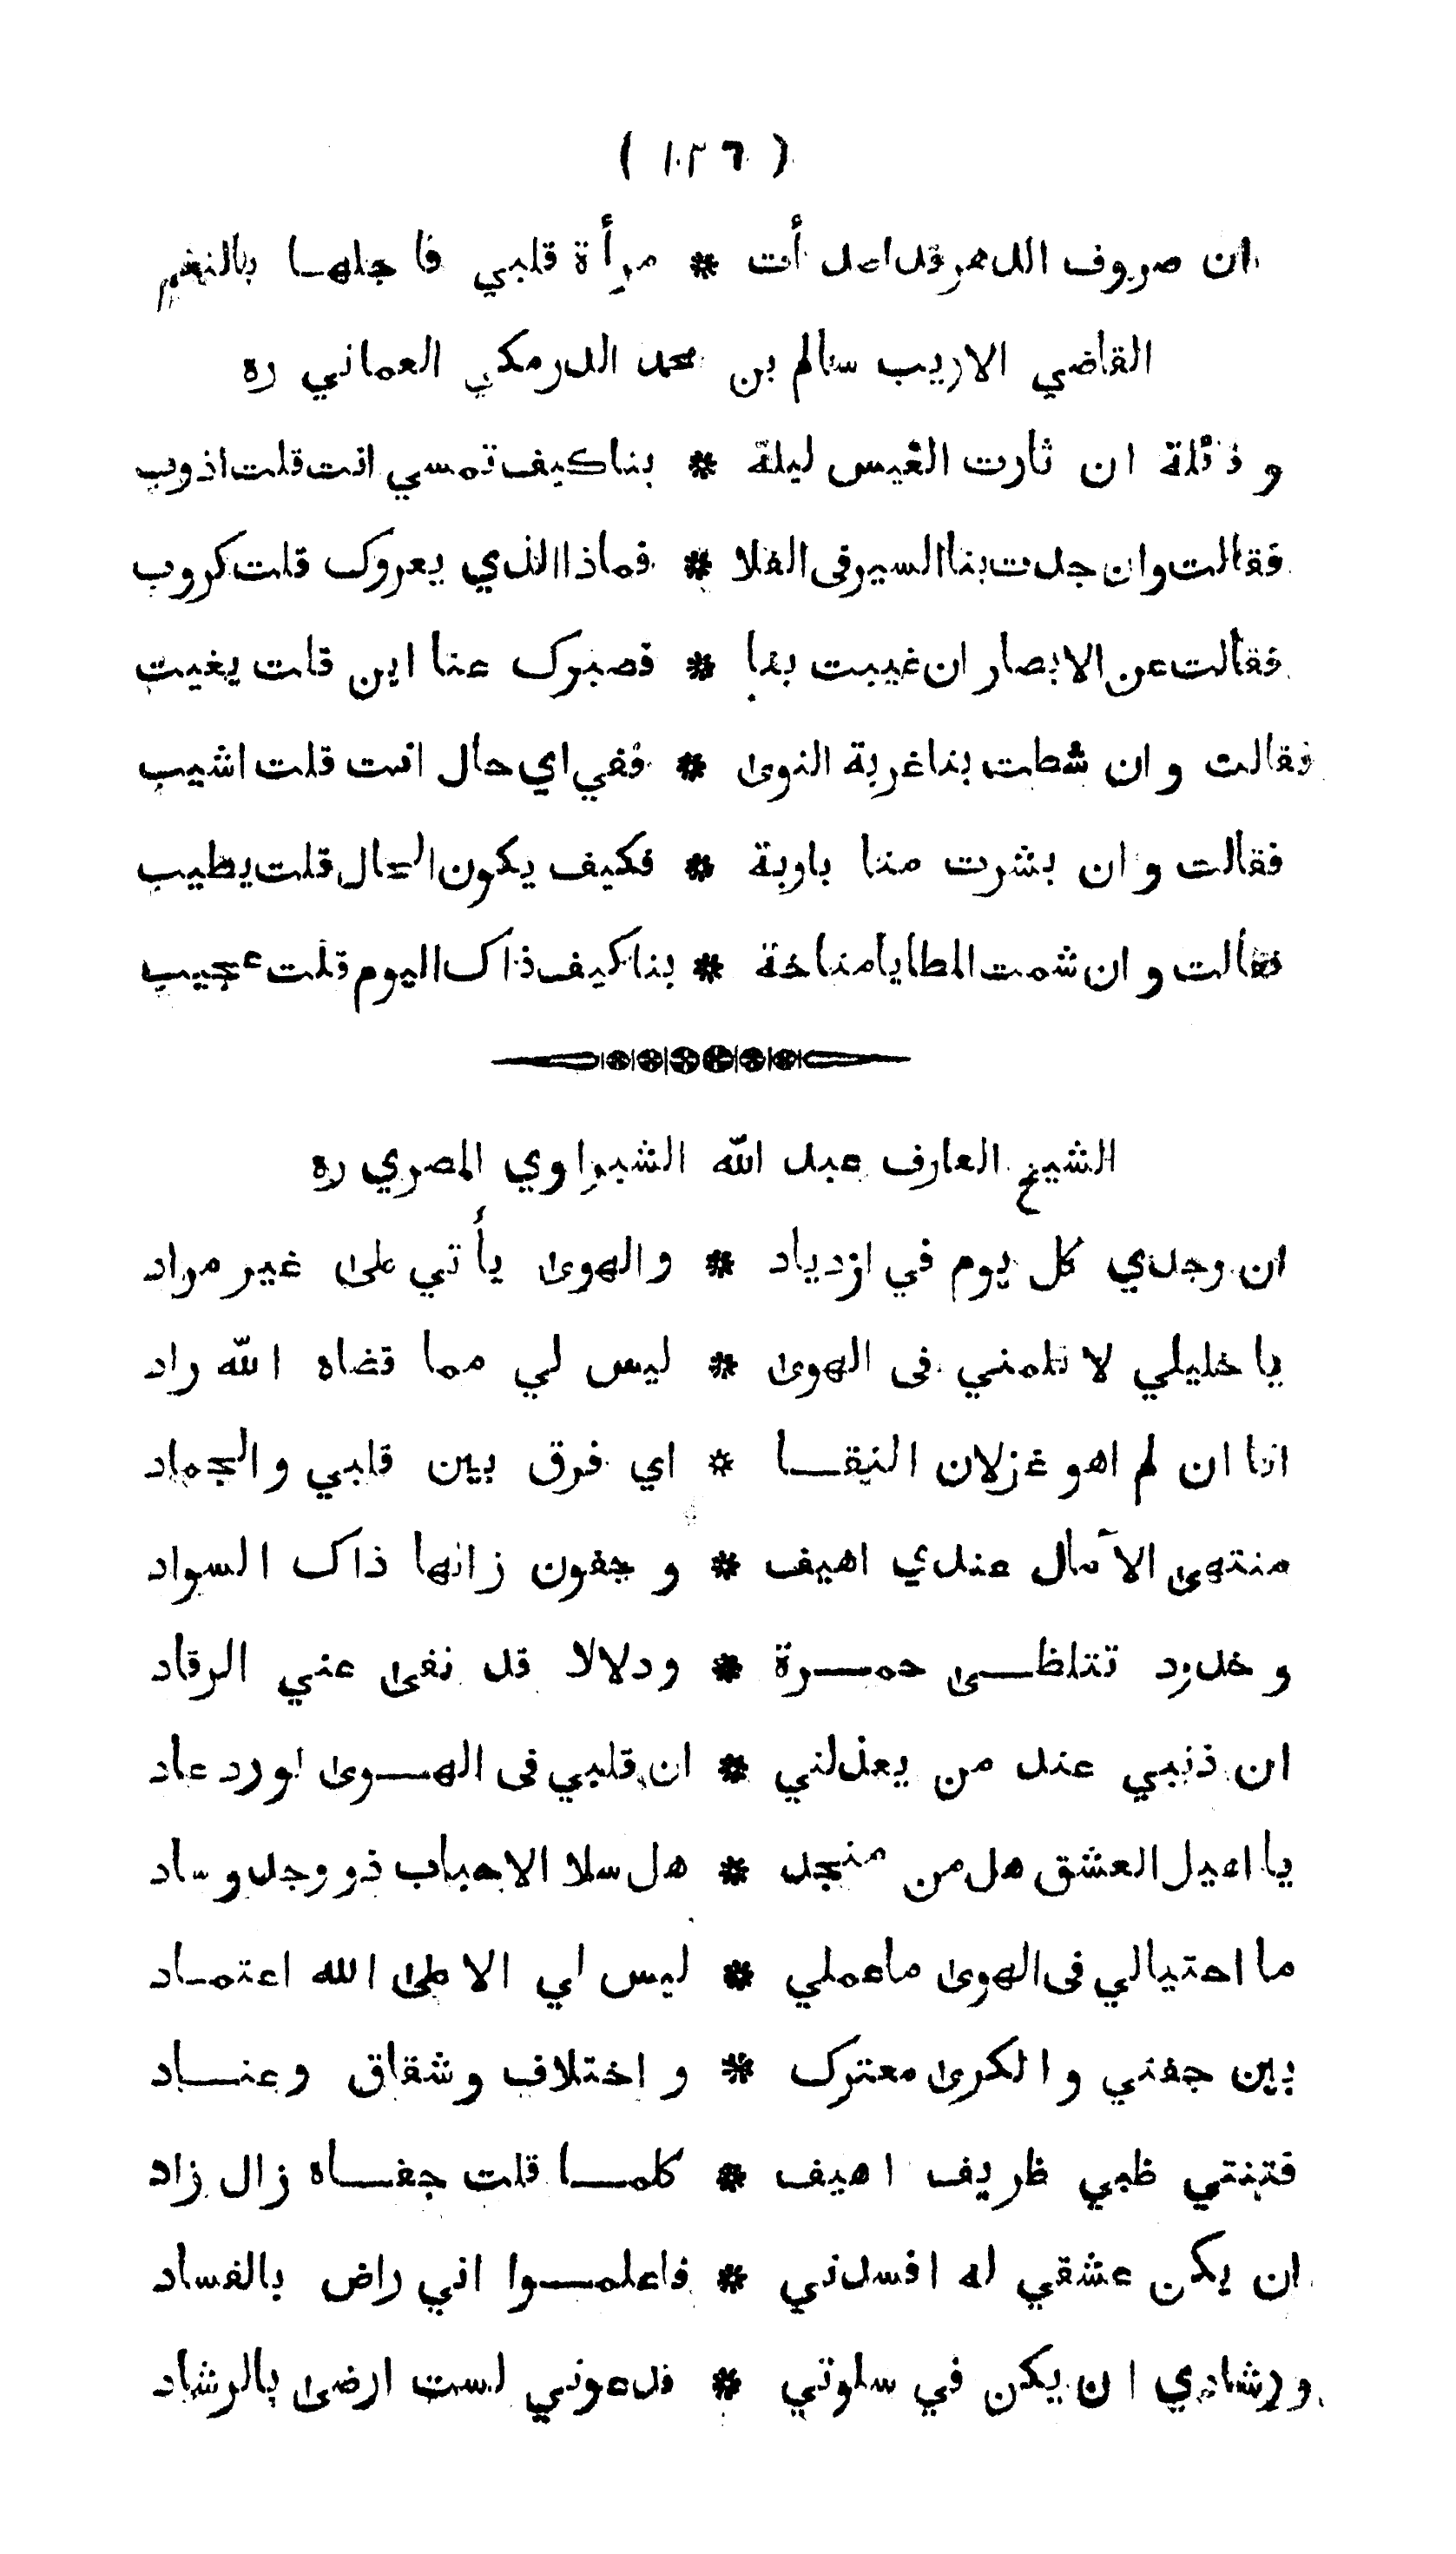 ( ١٣٦ )
ان صروف الدهر قد اصدأت * مرأة قلبي فاجلها بالنغم
القاضي الاريب سالم بن محمد الدرمكي العماني ره
و قائلة ان ثارت العيس ليلة * بنا كيف تمسي انت قلت اذوب
فقالت وان جدت بنا السير فى الفلا * فماذا الذي يعروك قلت كروب
فقالت عن الابصار ان غيبت بنا * فصبرك عنا اين قلت يغيب
فقالت وان شطت بنا غربة النوى * ففي اي حال انت قلت اشيب
فقالت وان بشرت منا باوبة * فكيف يكون الحال قلت يطيب
فقالت وان شمت المطايا مناخة * بنا كيف ذاك اليوم قلت عجيب
الشيخ العارف عبد الله الشبراوي المصري ره
ان وجدي كل يوم في ازدياد * والهوى يأتي على غير مراد
يا خليلي لا تلمني فى الهوى * ليس لي مما قضاه الله راد
انا ان لم اهو غزلان النقــا * اي فرق بين قلبي والجماد
منتهى الآمال عندي اهيف * و جفون زانها ذاك السواد
و خدود تتلظــى حمــرة * ودلالا قد نفى عني الرقاد
ان ذنبي عند من يعذلني * ان قلبي فى الهــوى لو رد عاد
يا اهيل العشق هل من منجد * هل سلا الاحباب ذو وجد وساد
ما احتيالي فى الهوى ما عملي * ليس لي الا على الله اعتمـاد
بين جفني والكرى معترك * و اختلاف وشقاق وعنــاد
فتنتي ظبي ظريف اهيف * كلمــا قلت جفــاه زال زاد
ان يكن عشقي له افسدني * فاعلمــوا اني راض بالفساد
ورشادي ان يكن في سلوتي * فدعوني لست ارضى بالرشاد